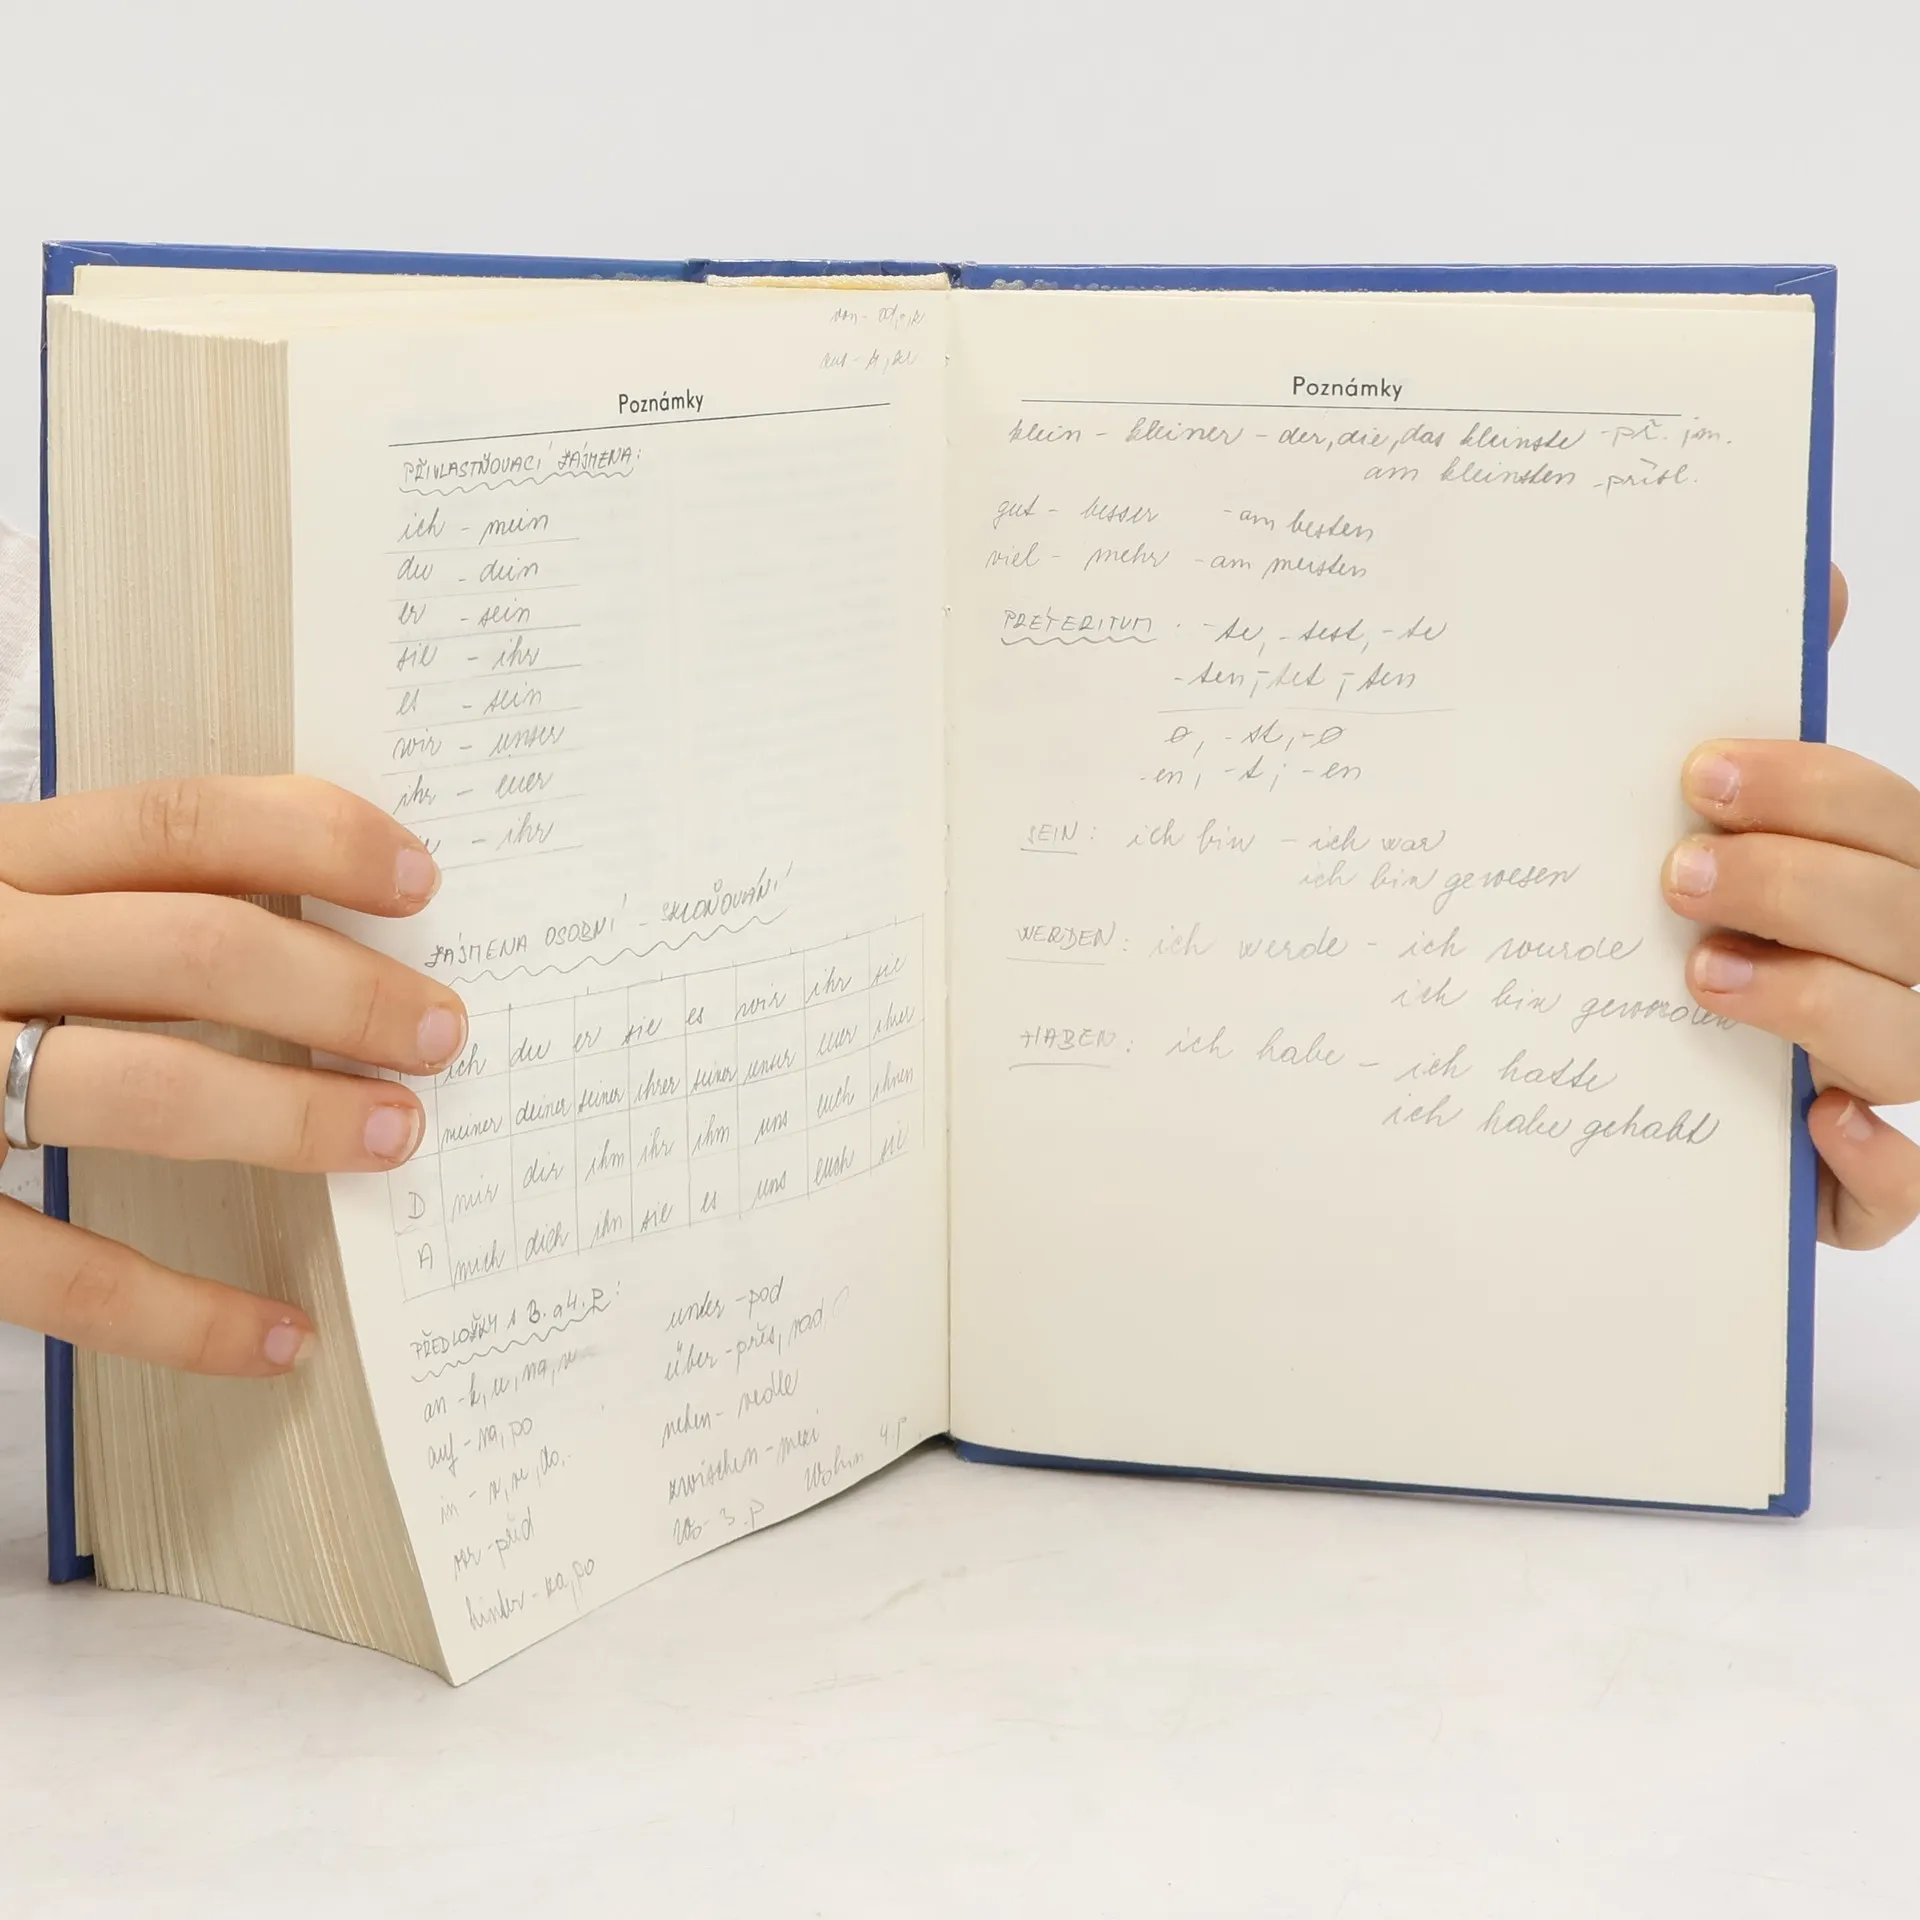 von - od, z
aus - z, ze
Poznámky
PŘIVLASTŇOVACÍ ZÁJMENA:
ich - mein
du - dein
er - sein
sie - ihr
es - sein
wir - unser
ihr - euer
- ihr
ZÁJMENA OSOBNÍ - SKLOŇOVÁNÍ
ich du er sie es wir ihr sie
meiner deiner seiner ihrer seiner unser euer ihrer
D mir dir ihm ihr ihm uns euch ihnen
A mich dich ihn sie es uns euch sie
PŘEDLOŽKY s 3. a 4. P:
an - k, u, na, v
auf - na, po
in - v, ve, do,
vor - před
hinter - za, po
unter - pod
über - přes, nad
neben - vedle
zwischen - mezi
Wo - 3. P Wohin 4. P
Poznámky
klein - kleiner - der, die, das kleinste - př. jm.
am kleinsten - přísl.
gut - besser - am besten
viel - mehr - am meisten
PRÉTERITUM: -te, -test, -te
-ten, -tet, -ten
ø, -st, -ø
-en, -t, -en
SEIN: ich bin - ich war
ich bin gewesen
WERDEN: ich werde - ich wurde
ich bin geworden
HABEN: ich habe - ich hatte
ich habe gehabt